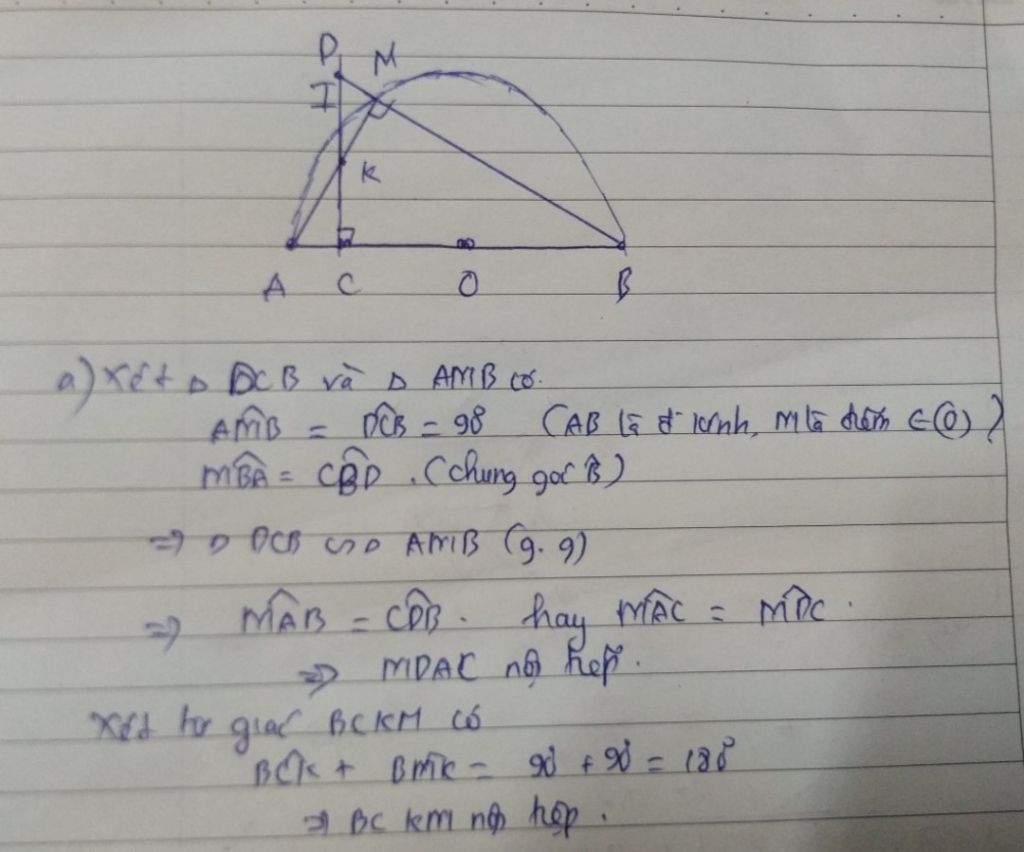 D M
I
K
A C O B
a) Xét △ DCB và △ AMB có.
AM̂B = DĈB = 90° (AB là đ kính, M là điểm ∈ (O))
MB̂A = CB̂D. (chung góc B̂)
⇒ △ DCB ∽ △ AMB (g.g)
⇒ MÂB = CD̂B. hay MÂC = MD̂C.
⇒ MDAC nội tiếp.
Xét tứ giác BCKM có
BĈK + BM̂K = 90° + 90° = 180°
⇒ BCKM nội tiếp.